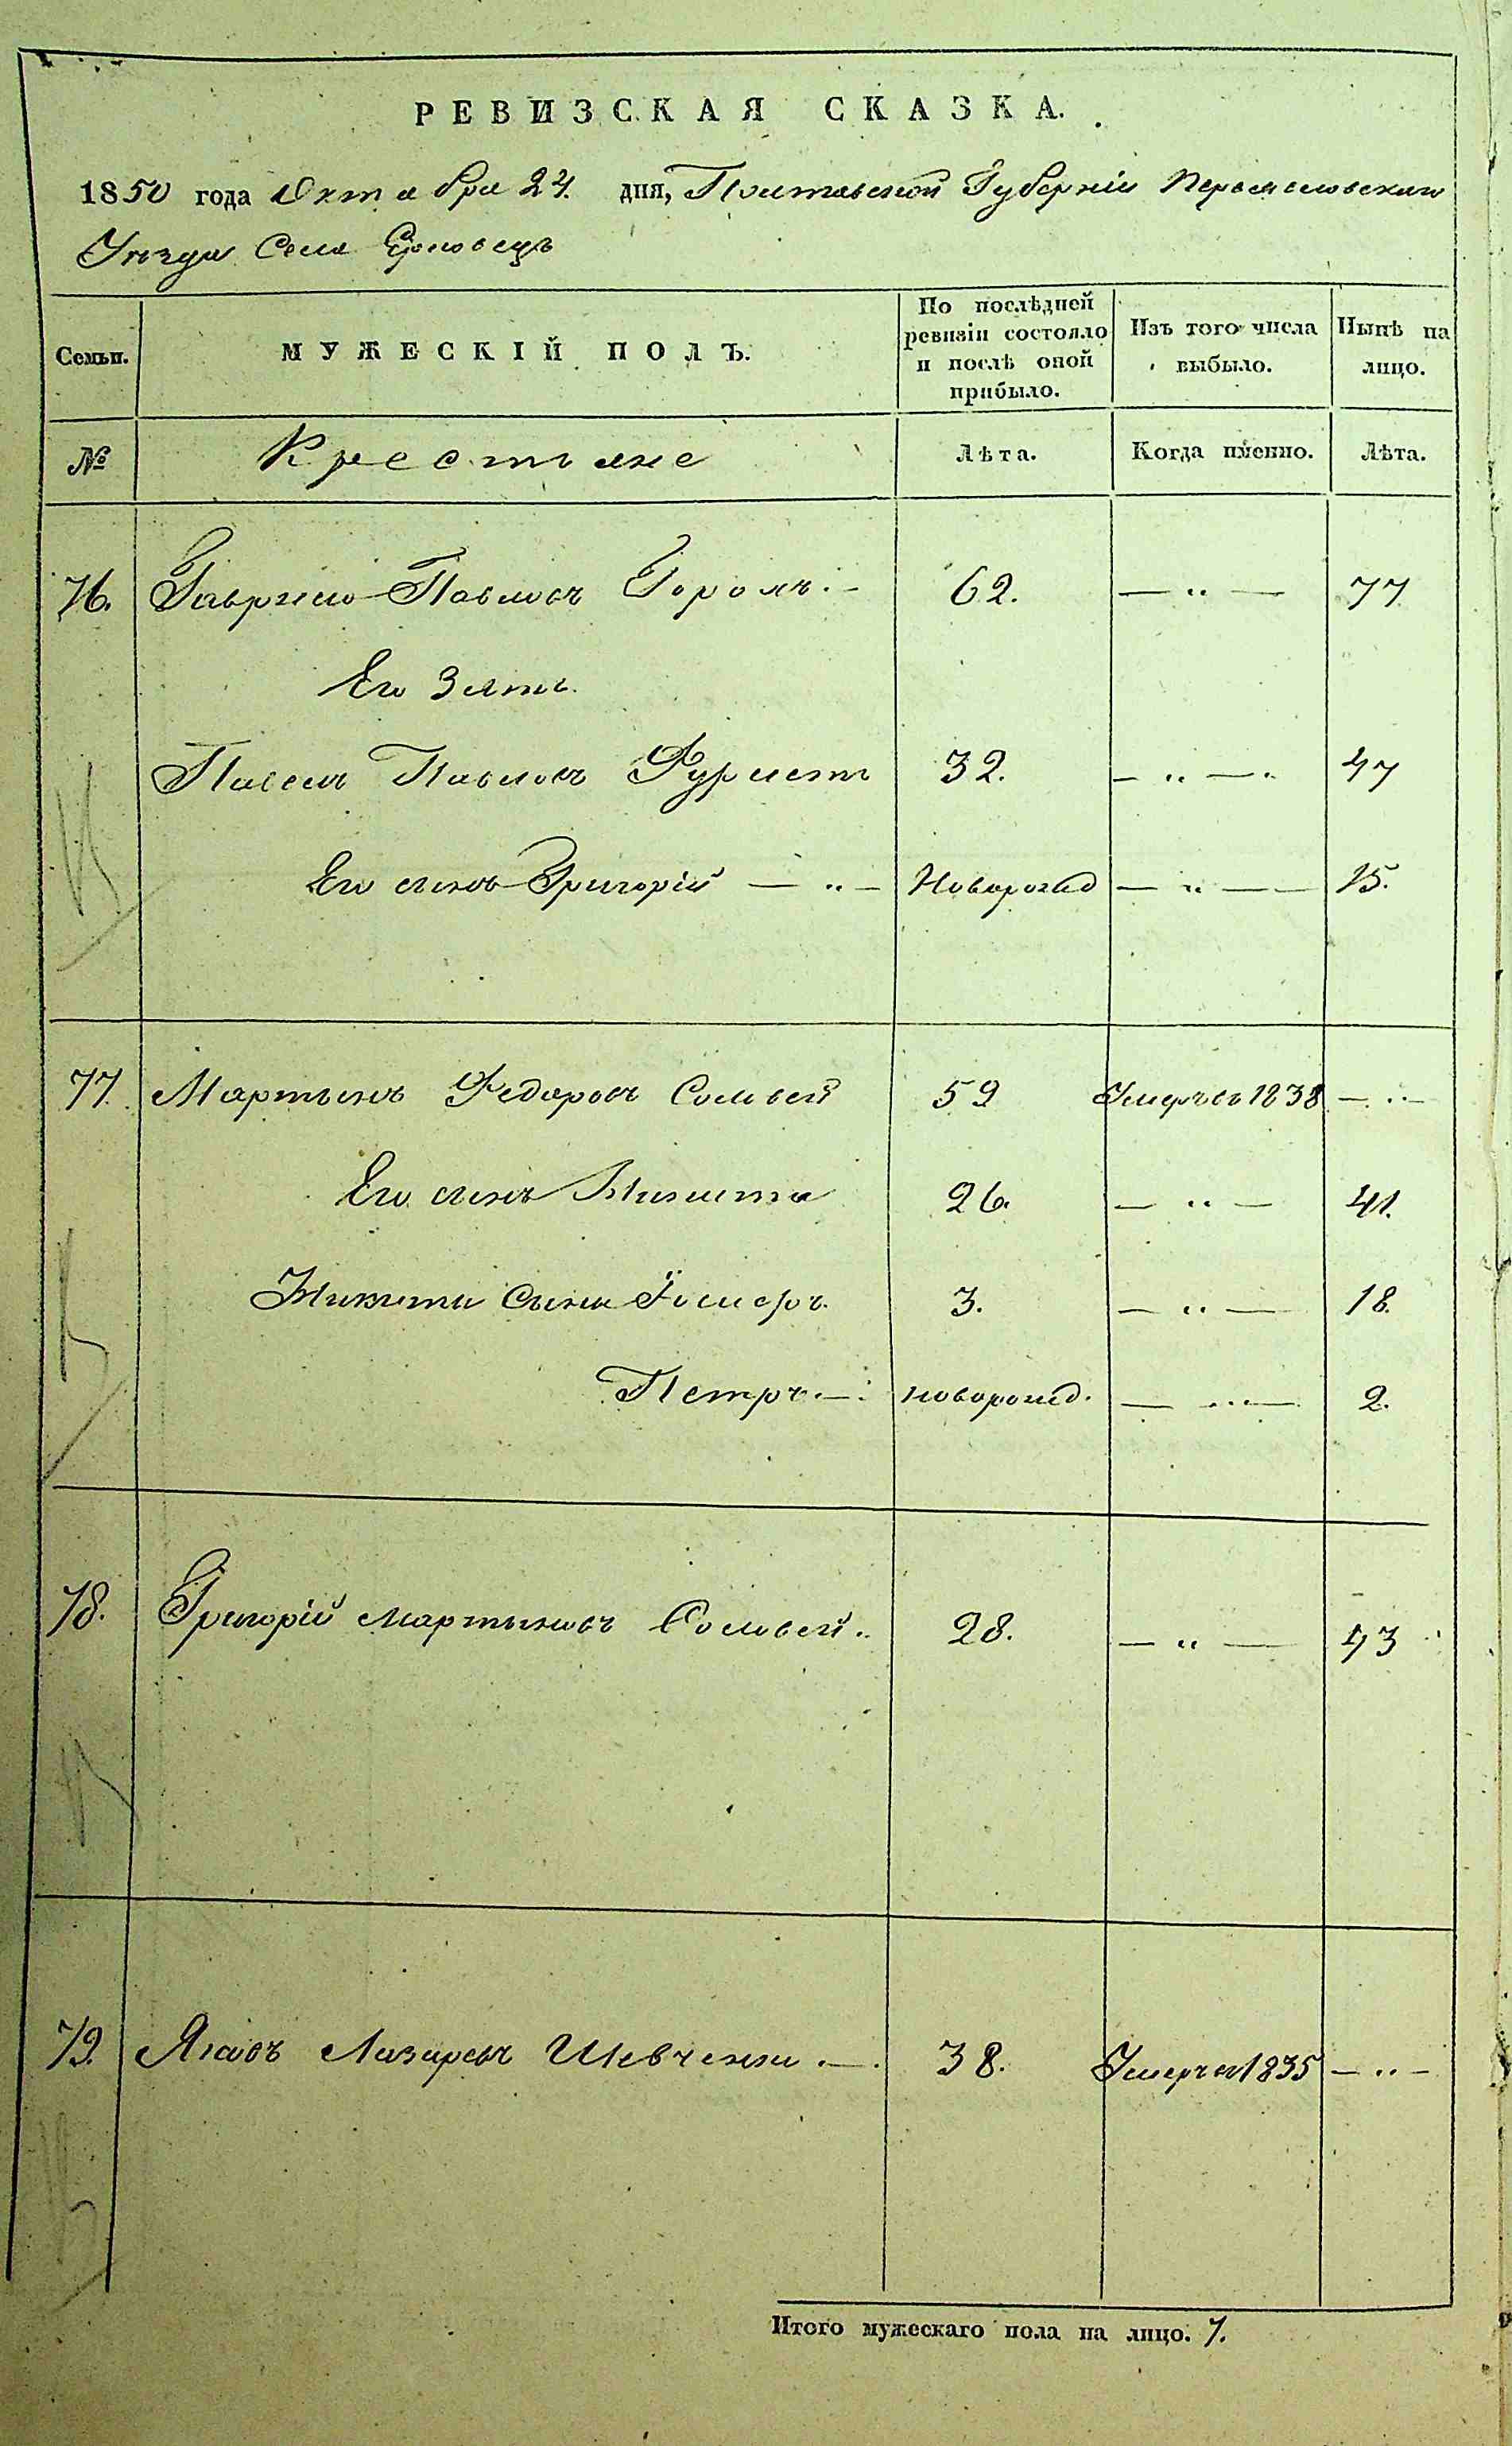 РЕВИЗСКАЯ СКАЗКА.
1850 года Октября 24. дня, Полтавской Губерніи Переяславскаго
Уѣзда Села Ерковецъ
Семьи. МУЖЕСКІЙ ПОЛЪ. По послѣдней ревизіи состояло и послѣ оной прибыло. Изъ того числа выбыло. Нынѣ на лицо.
№ Крестьяне Лѣта. Когда имянно. Лѣта.
76. Гаврило Павловъ 62. — „ — 77
Его Зять.
Павелъ Павловъ 32. — „ — 47
Его сынъ Григорій — „ — Новорожд — „ — 15.
77. Мартынъ Федоровъ Соловей 59 Умеръ въ 1838 — „ —
Его сынъ Никита 26. — „ — 41.
Никиты Сыны 3. — „ — 18.
Петръ — новорожд. — „ — 2.
78. Григорій Мартыновъ Соловей. 28. — „ — 43
79. Яковъ Лазаревъ Шевченко — 38. Умеръ въ 1835 — „ —
Итого мужескаго пола на лицо. 7.